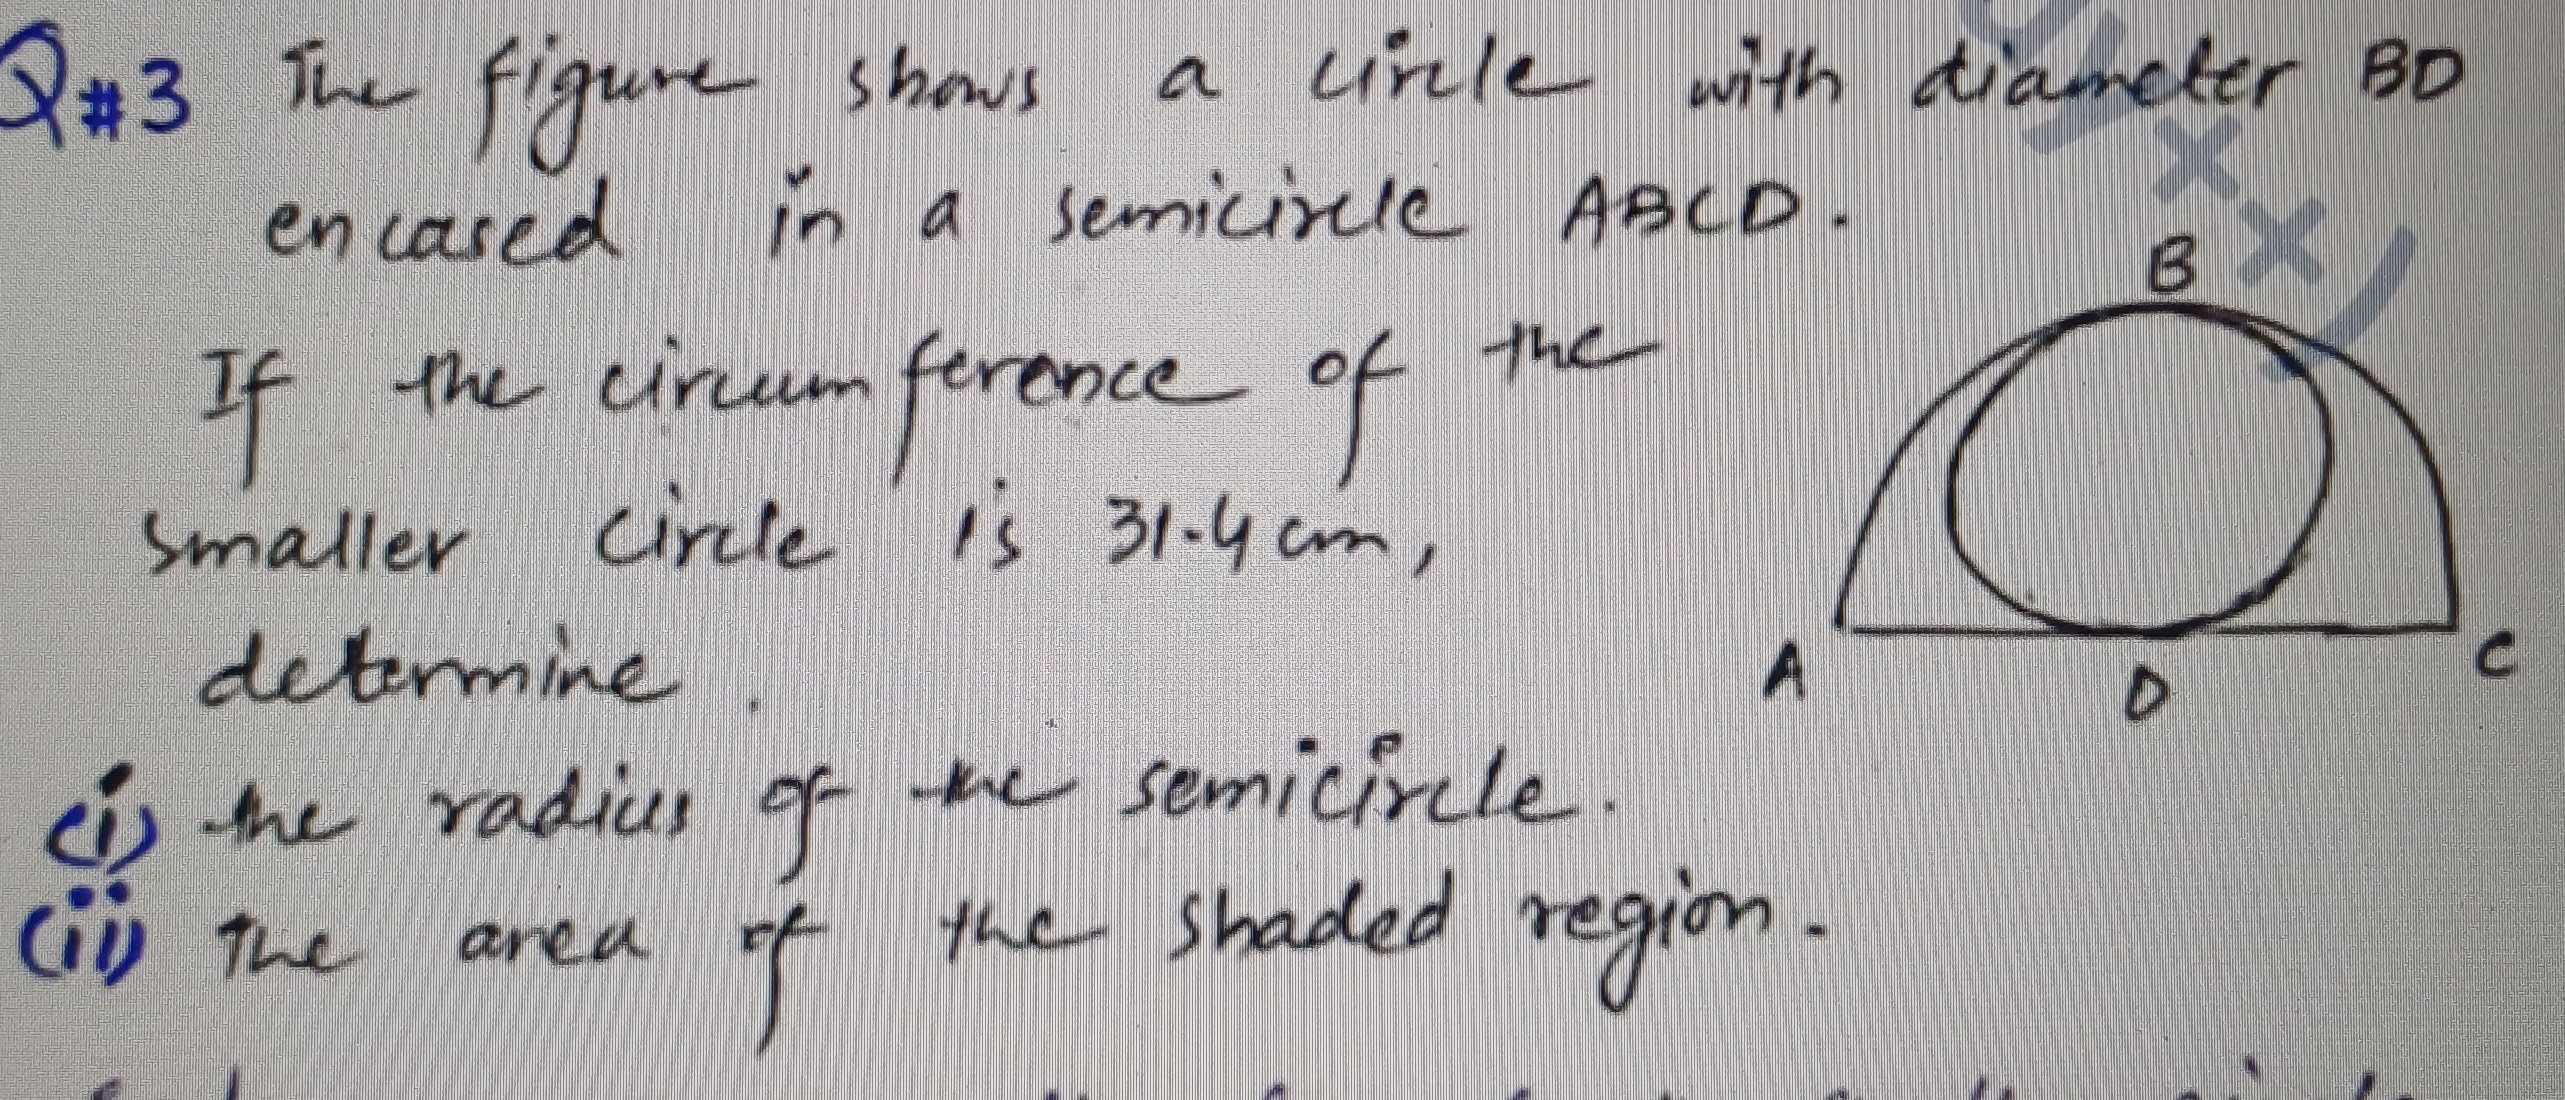 Q#3 The figure shows a circle with diameter BD
encased in a semicircle ABCD.
B
If the circumference of the
smaller circle is 31.4 cm,
determine.
A D C
(i) the radius of the semicircle.
(ii) The area of the shaded region.